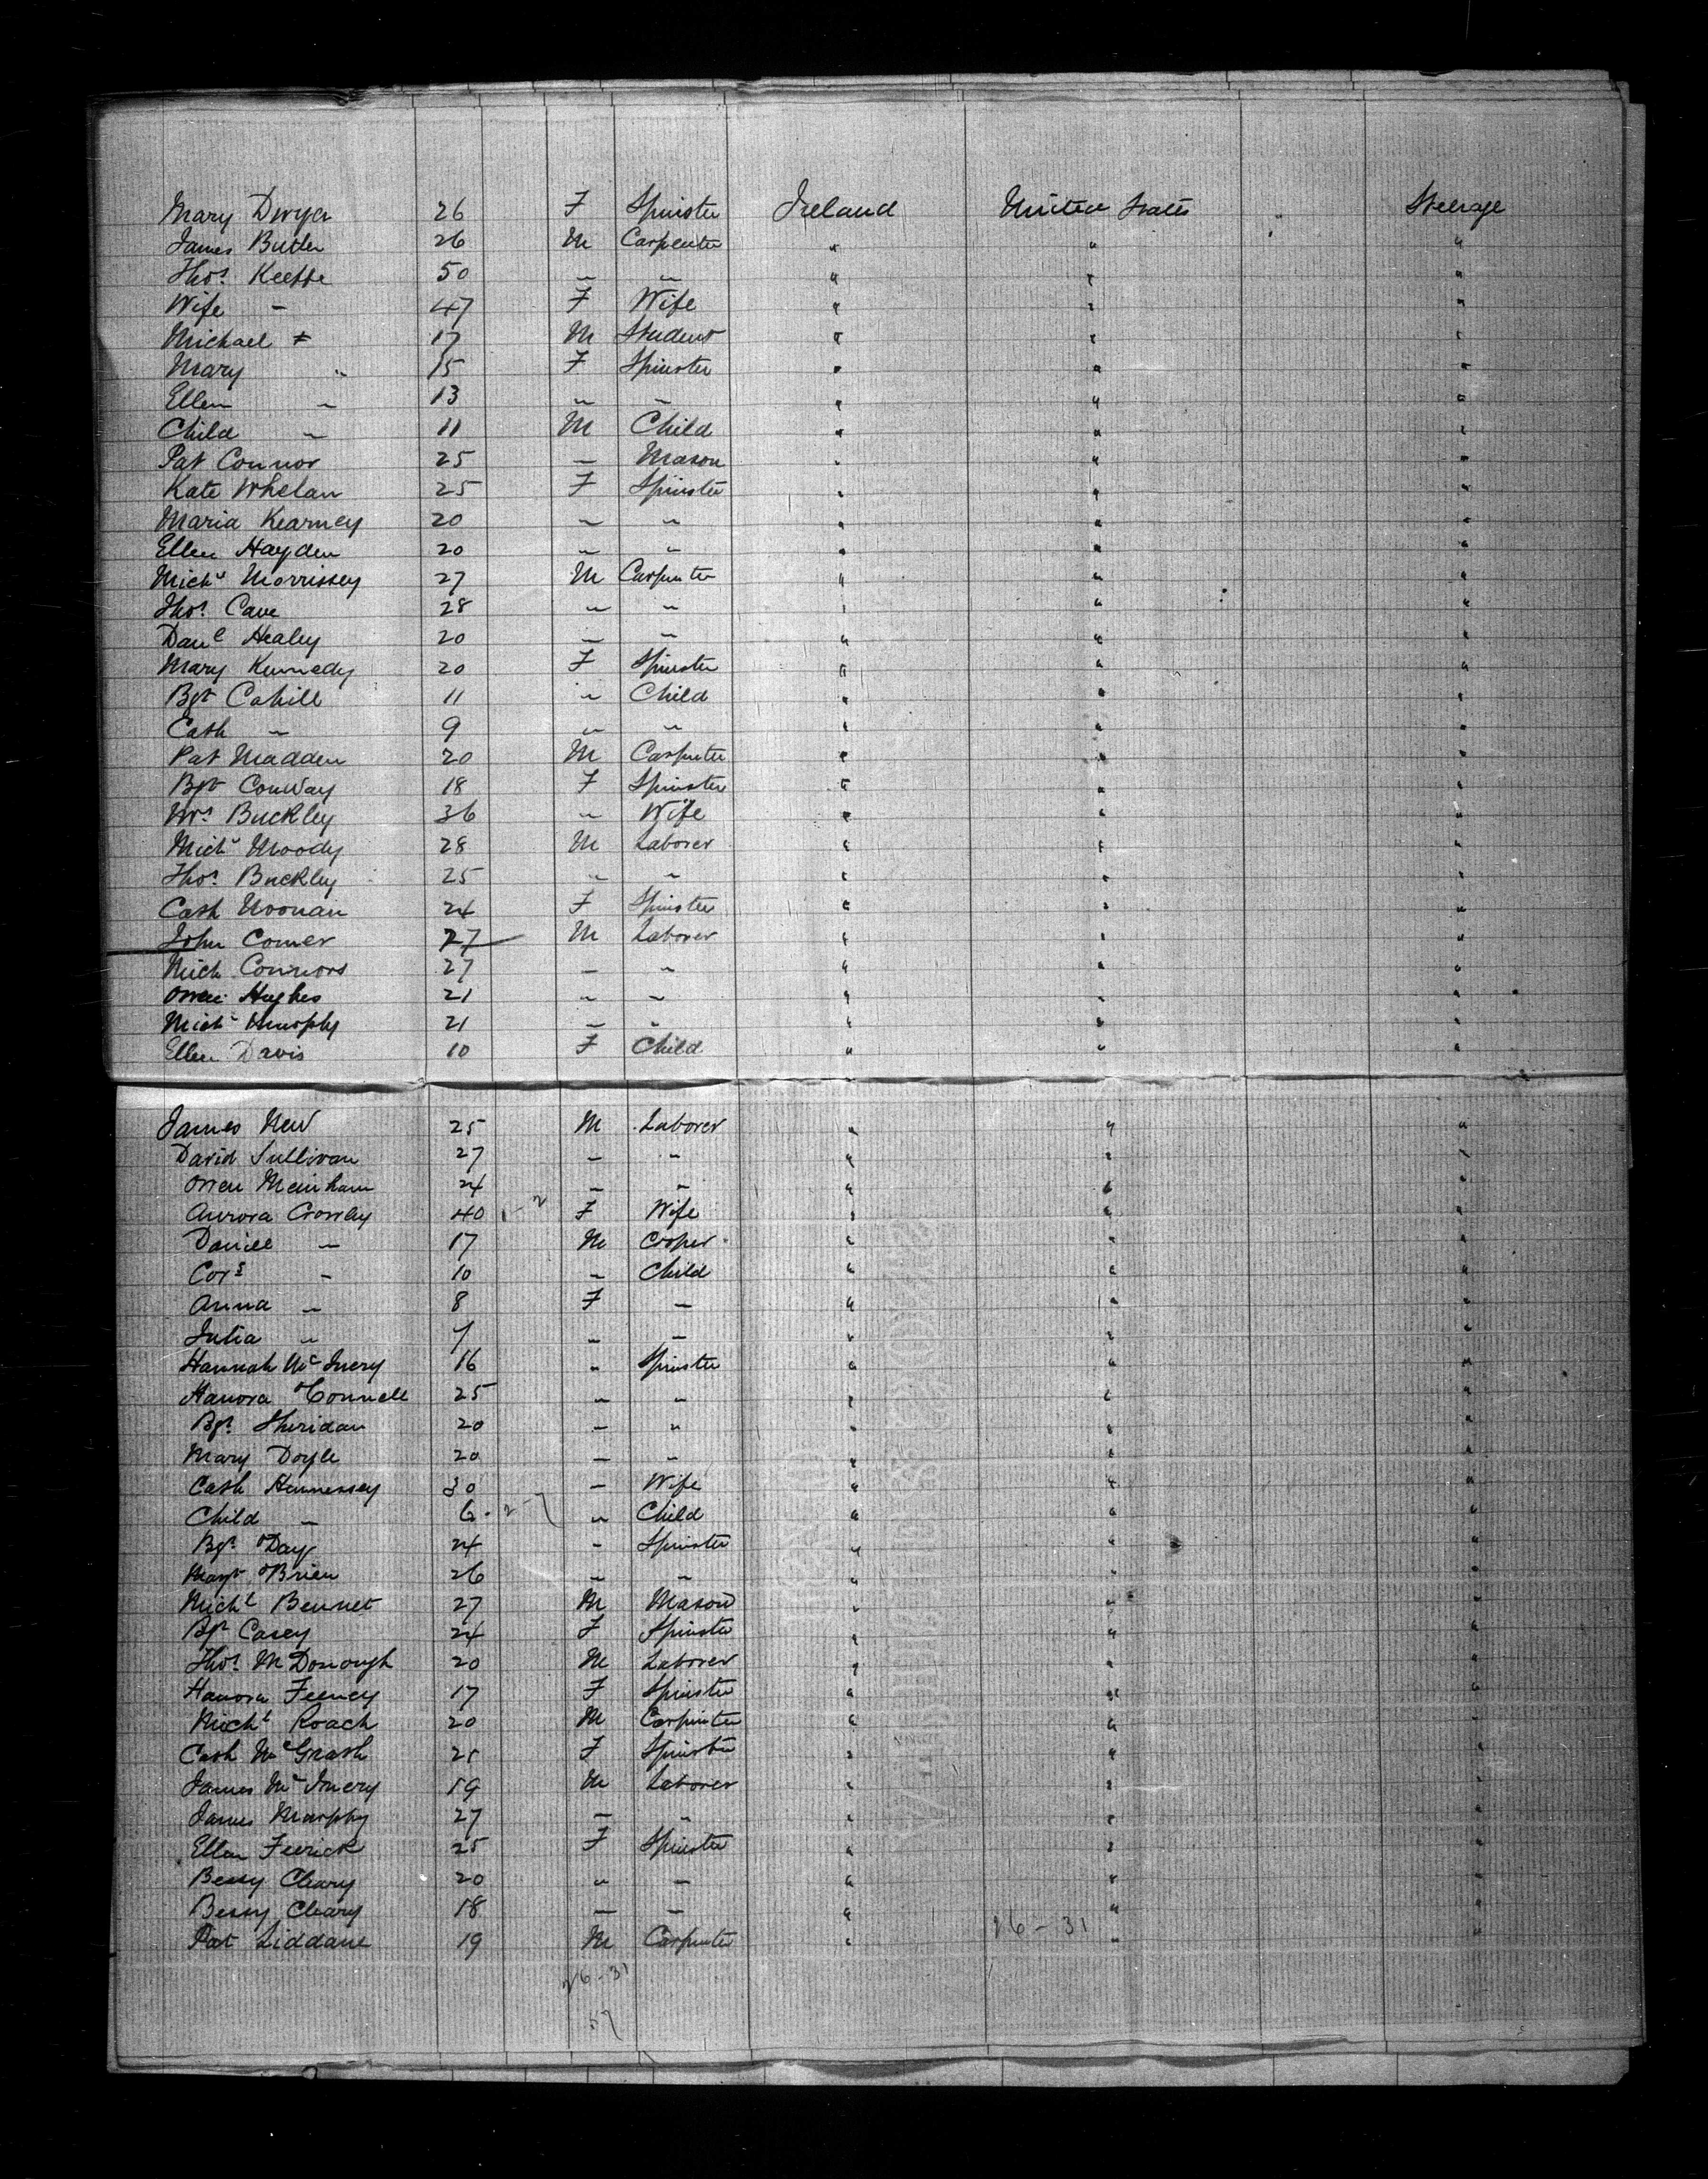 Mary Dwyer 26 F Spinster Ireland United States " Steerage
James Butler 26 M Carpenter " " "
Thos Keeffe 50 " " " " "
Wife " 47 F Wife " " "
Michael " 17 M Student " " "
Mary " 15 F Spinster " " "
Ellen " 13 " " " " "
Child " 11 M Child " " "
Pat Connor 25 " Mason " " "
Kate Whelan 25 F Spinster " " "
Maria Kearney 20 " " " " "
Ellen Hayden 20 " " " " "
Michl Morrissey 27 M Carpenter " " "
Thos Cave 28 " " " " "
Danl Healey 20 " " " " "
Mary Kennedy 20 F Spinster " " "
Bgt Cahill 11 " Child " " "
Cath " 9 " " " " "
Pat Madden 20 M Carpenter " " "
Bgt Conway 18 F Spinster " " "
Mrs Buckley 36 " Wife " " "
Michl Moody 28 M Laborer " " "
Thos Buckley 25 " " " " "
Cath Noonan 24 F Spinster " " "
John Comer 27 M Laborer " " "
Mich Connors 27 " " " " "
Owen Hughes 21 " " " " "
Michl Murphy 21 " " " " "
Ellen Davis 10 F Child " " "
James New 25 M Laborer " " "
David Sullivan 27 " " " " "
Owen 24 " " " " "
Crowley 40 1-2 F Wife " " "
Daniel " 17 M Cooper " " "
Cors " 10 " Child " " "
Anna " 8 F " " " "
Julia " 7 " " " " "
Hannah McInery 16 " Spinster " " "
Hanora O'Connell 25 " " " " "
Bgt Sheridan 20 " " " " "
Mary Doyle 20 " " " " "
Cath Hennessey 30 " Wife " " "
Child " 6 " Child " " "
Bgt O'Day 24 " Spinster " " "
Margt O'Brien 26 " " " " "
Michl Bennet 27 M Mason " " "
Bgt Casey 24 F Spinster " " "
Thos McDonough 20 M Laborer " " "
Hanora Feeney 17 F Spinster " " "
Michl Roach 20 M Carpenter " " "
Cath McGrath 25 F Spinster " " "
James McInery 19 M Laborer " " "
James Murphy 27 " " " " "
Ellen Feerick 25 F Spinster " " "
Bessy Cleary 20 " " " " "
Bessy Cleary 18 " " " " "
Pat Liddane 19 M Carpenter " 26-31 " "
26-31
57